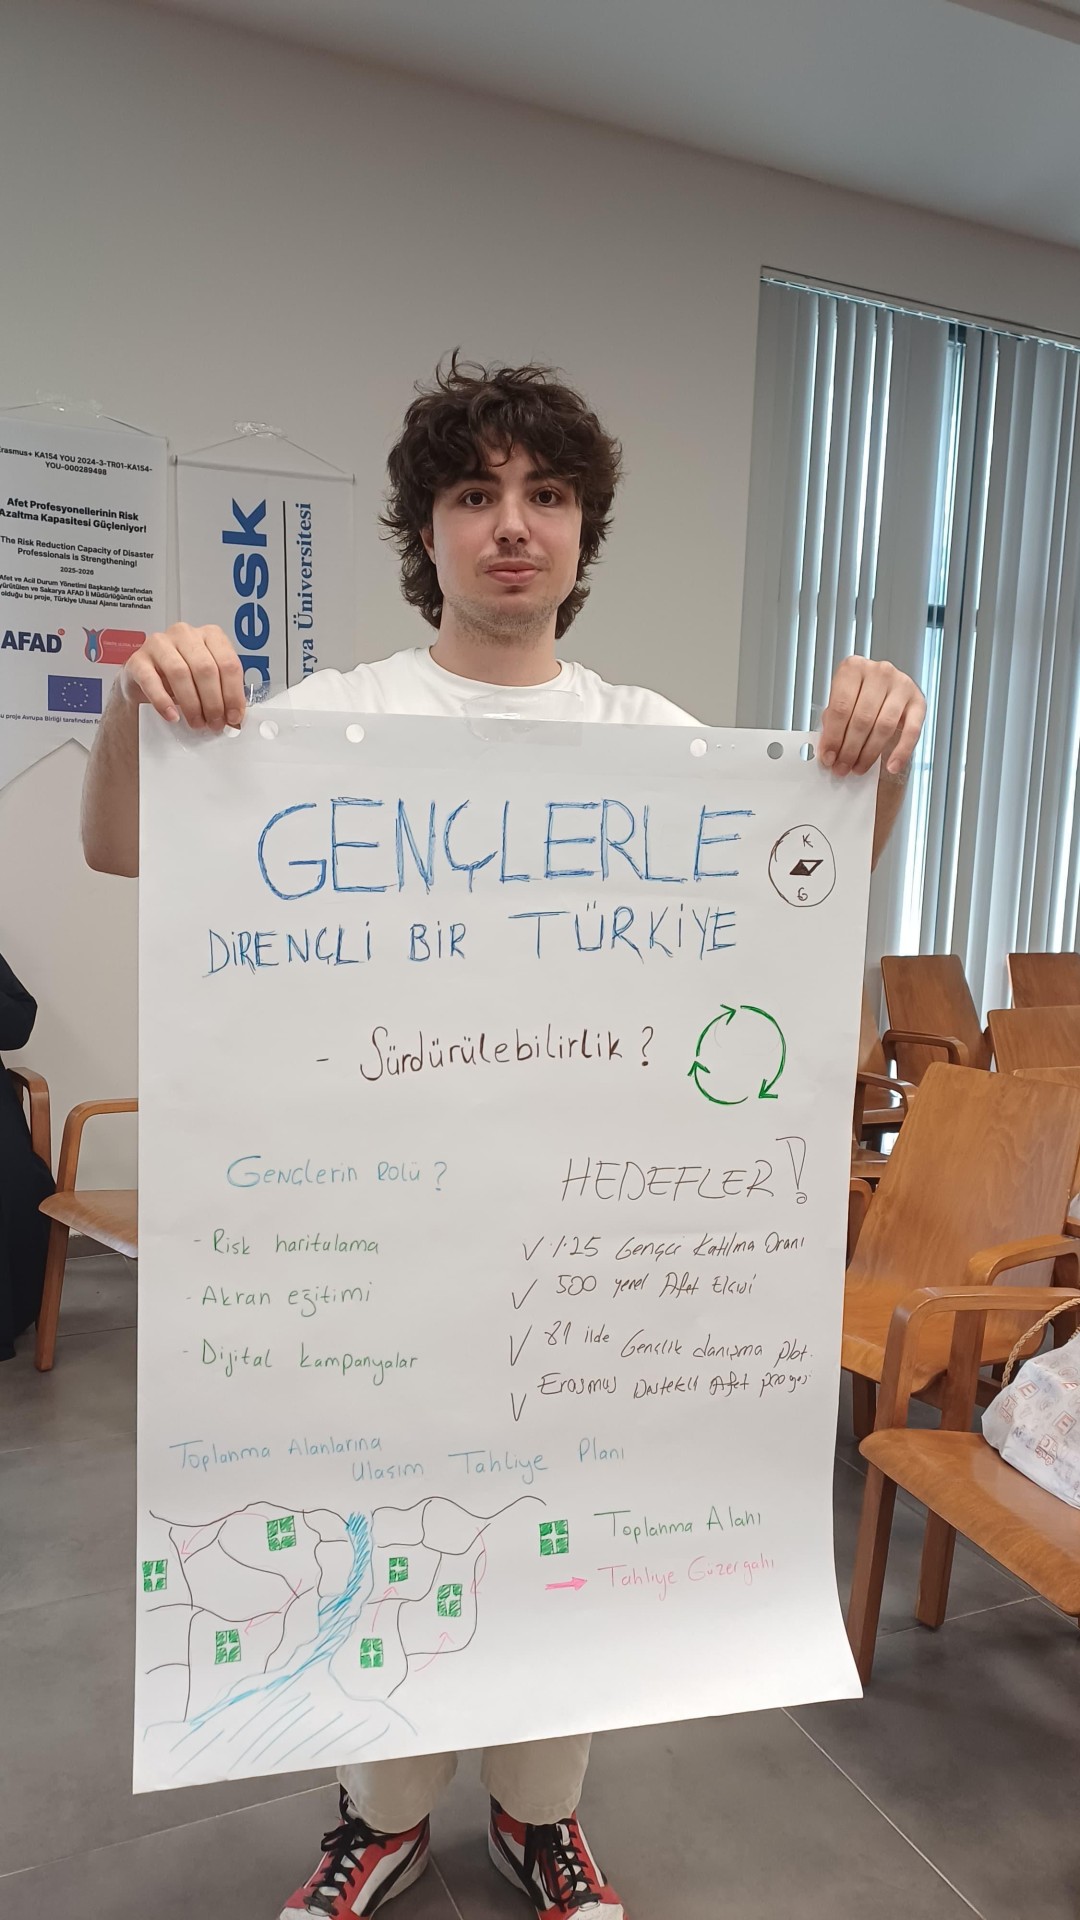 Erasmus+ KA154 YOU 2024-3-TR01-KA154-
YOU-000289498
Afet Profesyonellerinin Risk
Azaltma Kapasitesi Güçleniyor!
The Risk Reduction Capacity of Disaster
Professionals is Strengthening!
2025-2026
Afet ve Acil Durum Yönetimi Başkanlığı tarafından
yürütülen ve Sakarya AFAD İl Müdürlüğünün ortak
olduğu bu proje, Türkiye Ulusal Ajansı tarafından
AFAD
bu proje Avrupa Birliği tarafından
desk
rya Üniversitesi
GENÇLERLE
K
G
DİRENÇLİ BİR TÜRKİYE
- Sürdürülebilirlik ?
Gençlerin rolü ?
- Risk haritulama
- Akran eğitimi
- Dijital kampanyalar
HEDEFLER!
✓ %25 Gençci Katılma Oranı
✓ 500 yerel Afet Elçisi
✓ 81 ilde Gençlik danışma plat.
✓ Erasmus Destekli Afet projesi
Toplanma Alanlarına
Ulaşım Tahliye Planı
Toplanma Alanı
Tahliye Güzergahı